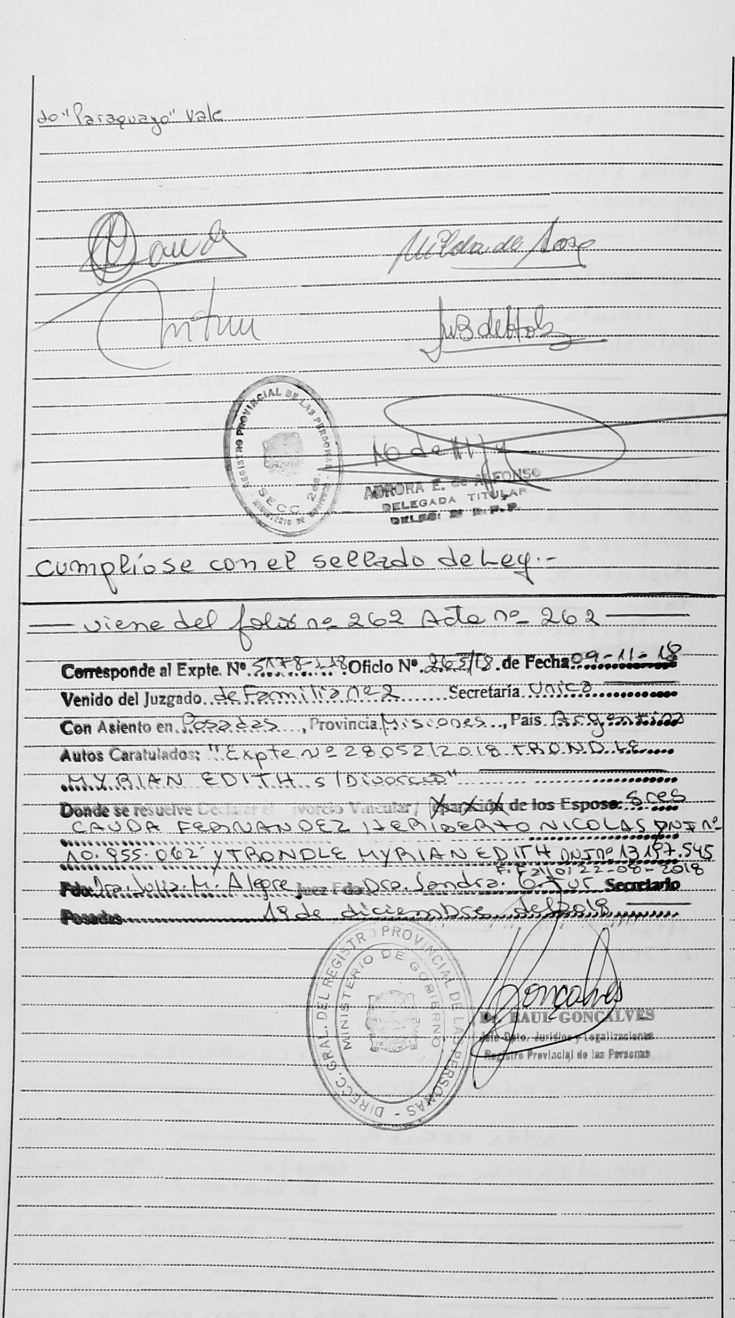 do "Paraguayo" Vale
REGISTRO PROVINCIAL DE LAS PERSONAS
SECC. 2da.
MINISTERIO DE GOBIERNO
AURORA E. de ALFONSO
DELEGADA TITULAR
DELEG. R. P. P.
Cumplióse con el sellado de Ley.-
— viene del folio nº 262 Acta nº 262 —
Corresponde al Expte. Nº 5178-I-18 Oficio Nº 263/18 de Fecha 09-11-18
Venido del Juzgado de Familia nº 2 Secretaría Unica
Con Asiento en Posadas, Provincia Misiones, País Argentina
Autos Caratulados: "Expte Nº 28052/2018 TRONDLE
MYRIAN EDITH s/Divorcio"
Donde se resuelve Declarar el Divorcio Vincular/ Separación de los Esposo: Sres
CAUDA FERNANDEZ HERIBERTO NICOLAS DNI nº
10.855.062 y TRONDLE MYRIAN EDITH DNI nº 13.197.545
F. Fallo: 22-08-2018
Fdo: Dra. Julia M. Alegre Juez Fdo Dra. Sandra. Secretario
Posadas 19 de diciembre del 2018
DIREC. GRAL. DEL REGISTRO PROVINCIAL DE LAS PERSONAS
MINISTERIO DE GOBIERNO
Gonçalves
Dr. RAUL GONCALVES
Jefe Dpto. Jurídico y Legalizaciones
Registro Provincial de las Personas